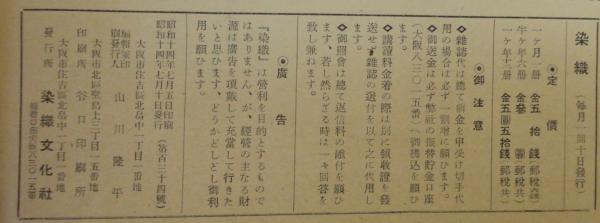 染織（每月一回十日發行）
◉定價
一ヶ月一册　金五拾錢（郵稅共）
半ヶ年六册　金參圓（郵稅共）
一ヶ年十二册　金五圓五拾錢（郵稅共）
◉御注意
◇雜誌代は總て前金を申受け切手代
用の場合は必ず一割增に願ひます。
◇御送金は必ず弊社の振替貯金口座
（大阪八三〇一五番）へ御拂込を願ひ
ます。
◇購讀料金着の際は別に領收證を發
送せず雜誌の送付を以て之に代用し
ます。
◇御照會は總て返信料の添付を願ひ
ます、若し然らざる時は一々回答を
致し兼ねます。
◉廣告
『染織』は營利を目的とするもので
はありませんが、經營の主なる財
源は廣告を頂戴して充當して行きた
いと思ひます、どうかどしどし御利
用を願ひます。
昭和十四年七月五日印刷
昭和十四年七月十日發行（第百三十四號）
大阪市住吉區北畠中一丁目一番地
編輯兼印刷發行人　山川隆平
大阪市北區堂島上三丁目一五番地
印刷所　谷口印刷所
大阪市住吉區北畠中一丁目一番地
發行所　染織文化社
振替口座大阪八三〇一五番